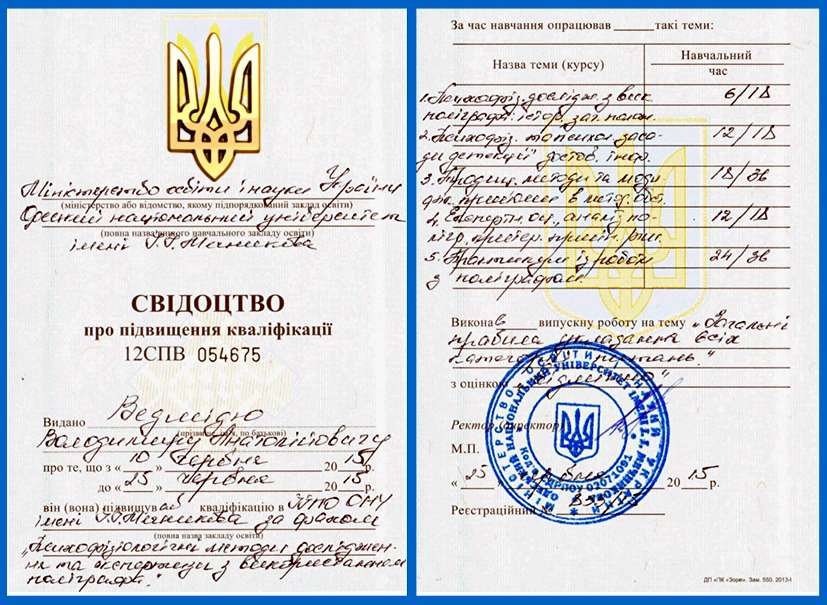 Міністерство освіти і науки України
(міністерство або відомство, якому підпорядкований заклад освіти)
Одеський національний університет
(повна назва вищого навчального закладу освіти)
імені І.І. Мечникова
СВІДОЦТВО
про підвищення кваліфікації
12СПВ 054675
Видано Ведмідю
(прізвище, ім'я, по батькові)
Володимиру Анатолійовичу
про те, що з « 10 » червня 20 15 р.
до « 25 » червня 20 15 р.
він (вона) підвищував кваліфікацію в ОНУ
імені І.І. Мечникова за фахом
(повна назва закладу освіти)
„Психофізіологічні методи досліджен-
ня та експертизи з використанням
поліграфа"
За час навчання опрацював такі теми:
Назва теми (курсу)
Навчальний
час
1. Психофіз. дослідж. з вик. 6/18
поліграфа: істор. заг. полож.
2. Психофіз. та психол. заса- 12/18
ди детекції достов. інф.
3. Традиц. методи та моди 18/36
4. Експертн. оц., аналіз по- 12/18
5. Практикум із роботи 24/36
з поліграфом.
Виконав випускну роботу на тему „Загальні
правила складання всіх
категорій питань."
з оцінкою „відмінно"
Ректор (директор)
М.П.
« 25 » червня 20 15 р.
Реєстраційний №
МІНІСТЕРСТВО ОСВІТИ І НАУКИ УКРАЇНИ
ОДЕСЬКИЙ НАЦІОНАЛЬНИЙ УНІВЕРСИТЕТ ІМЕНІ І.І. МЕЧНИКОВА
Код ЄДРПОУ 02071091
ДП «ПК «Зоря». Зам. 550. 2013-І